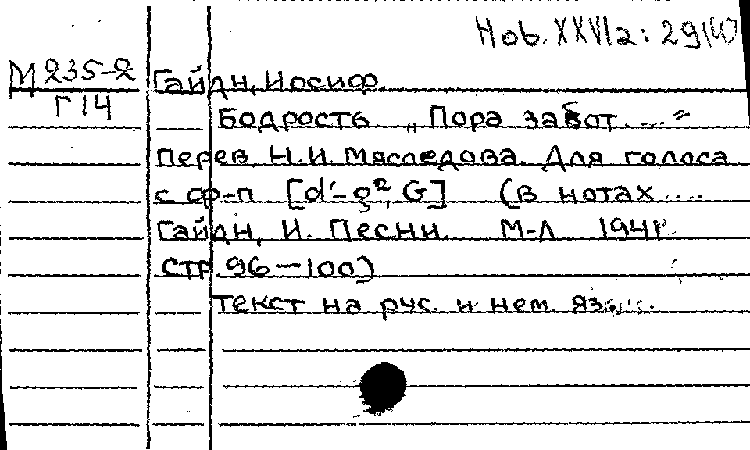 Hob. XXVIa: 29(W)
М 235-2
Г 14
Гайдн, Иосиф.
Бодрость „Пора забот ...."
Перев. Н.И. Мясоедова. Для голоса
с ф-п [d'-g², G] (в нотах ....
Гайдн, И. Песни М-Л 1941г.
стр. 96-100)
текст на рус. и нем. яз.